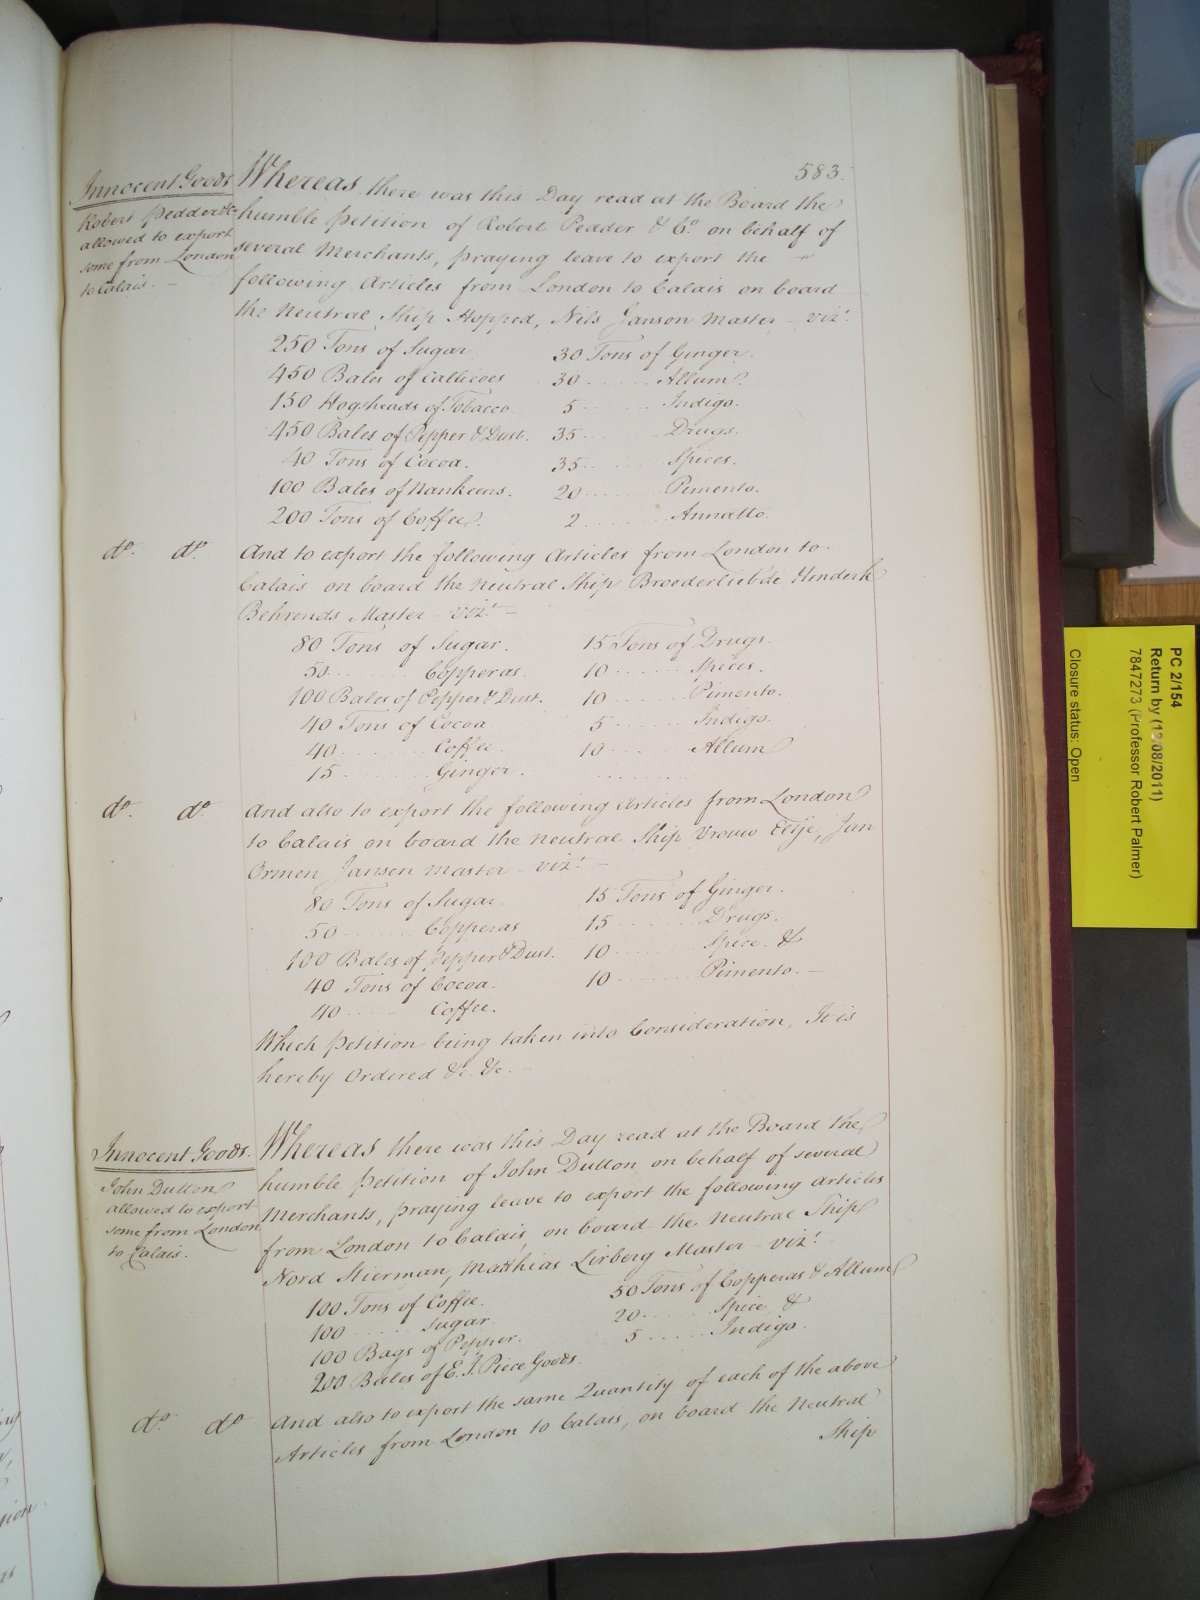 583.
Innocent Goods
Robert Pedder &c
allowed to export
some from London
to Calais. —
Whereas there was this Day read at the Board the
humble Petition of Robert Pedder & Co. on behalf of
several Merchants, praying leave to export the
following Articles from London to Calais on board
the Neutral Ship Hopped, Nils Janson Master – vizt.
250 Tons of Sugar. 30 Tons of Ginger.
450 Bales of Callicoes 30 ...... Allum.
150 Hogsheads of Tobacco. 5 ...... Indigo.
450 Bales of Pepper & Dust. 35 ...... Drugs.
40 Tons of Cocoa. 35 ...... Spices.
100 Bales of Nankeens. 20 ...... Pimento.
200 Tons of Coffee. 2 ...... Annatto.
do. do. And to export the following Articles from London to
Calais on board the Neutral Ship Broederliebde, Henderk
Behrends Master – vizt. –
80 Tons of Sugar. 15 Tons of Drugs.
50 ...... Copperas. 10 ...... Spices.
100 Bales of Pepper & Dust. 10 ...... Pimento.
40 Tons of Cocoa 5 ...... Indigo.
40 ...... Coffee. 10 ...... Allum
15 ...... Ginger.
do. do. And also to export the following Articles from London
to Calais on board the Neutral Ship Vrouw Eltje, Jan
Ormen Jansen Master – vizt. –
80 Tons of Sugar. 15 Tons of Ginger.
50 ...... Copperas 15 ...... Drugs.
100 Bales of Pepper & Dust. 10 ...... Spice. &
40 Tons of Cocoa. 10 ...... Pimento. –
40 ...... Coffee.
Which Petition being taken into Consideration, It is
hereby Ordered &c. &c. –
Innocent Goods.
John Dutton
allowed to export
some from London
to Calais.
Whereas there was this Day read at the Board the
humble Petition of John Dutton on behalf of several
Merchants, praying leave to export the following Articles
from London to Calais, on board the Neutral Ship
Nord Stierman, Matthias Lirberg Master – vizt.
100 Tons of Coffee. 50 Tons of Copperas & Allum
100 ...... Sugar. 20 ...... Spice &
100 Bags of Pepper. 5 ...... Indigo.
200 Bales of E. I. Piece Goods.
do. do. And also to export the same Quantity of each of the above
Articles from London to Calais, on board the Neutral
Ship
PC 2/154
Return by (12/08/2011)
7847273 (Professor Robert Palmer)
Closure status: Open